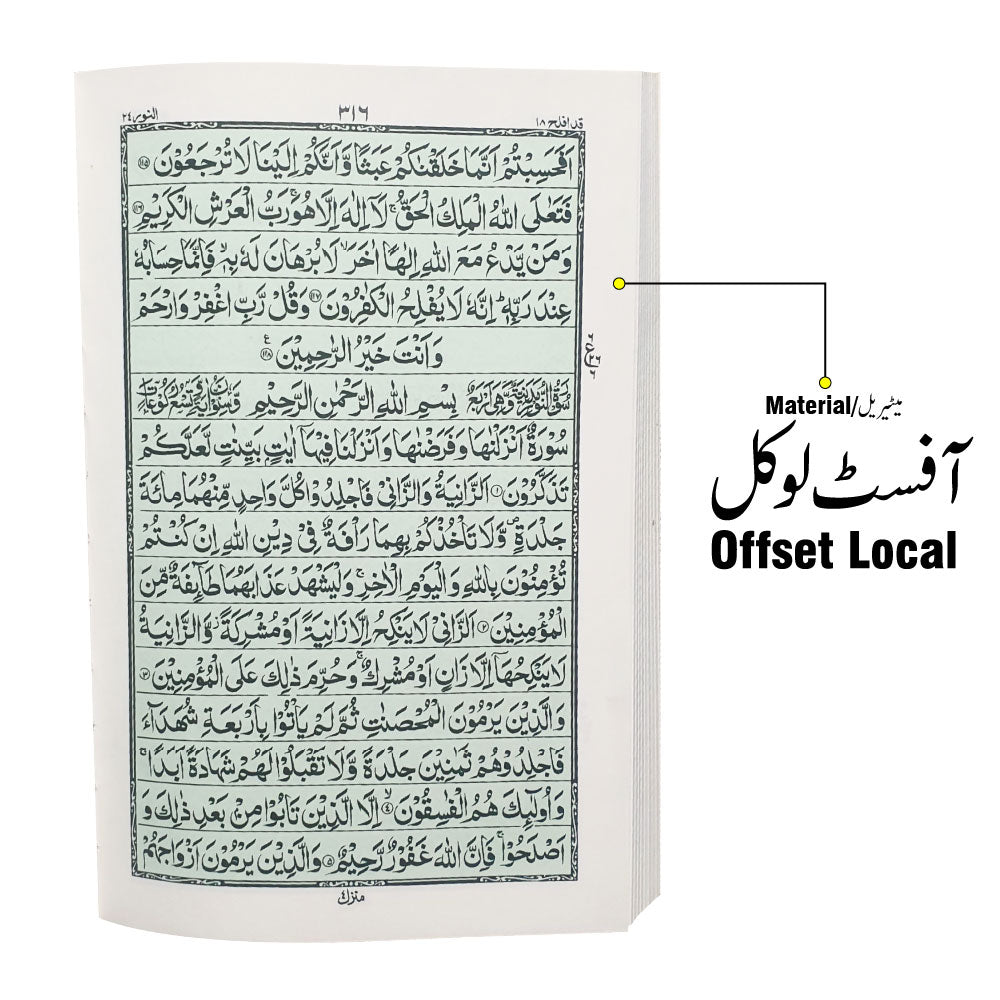 قد افلح ۱۸
۳۱۶
النور ۲۴
اَفَحَسِبْتُمْ اَنَّمَا خَلَقْنٰكُمْ عَبَثًا وَّاَنَّكُمْ اِلَيْنَا لَا تُرْجَعُوْنَ ۝۱۱۵
فَتَعٰلَى اللّٰهُ الْمَلِكُ الْحَقُّ ۚ لَاۤ اِلٰهَ اِلَّا هُوَ ۚ رَبُّ الْعَرْشِ الْكَرِيْمِ ۝۱۱۶
وَمَنْ يَّدْعُ مَعَ اللّٰهِ اِلٰهًا اٰخَرَ ۙ لَا بُرْهَانَ لَهٗ بِهٖ ۙ فَاِنَّمَا حِسَابُهٗ
عِنْدَ رَبِّهٖ ؕ اِنَّهٗ لَا يُفْلِحُ الْكٰفِرُوْنَ ۝۱۱۷ وَقُلْ رَّبِّ اغْفِرْ وَارْحَمْ
وَاَنْتَ خَيْرُ الرّٰحِمِيْنَ ۝۱۱۸ ع
بِسْمِ اللّٰهِ الرَّحْمٰنِ الرَّحِيْمِ
سُوْرَةٌ اَنْزَلْنٰهَا وَفَرَضْنٰهَا وَاَنْزَلْنَا فِيْهَاۤ اٰيٰتٍۭ بَيِّنٰتٍ لَّعَلَّكُمْ
تَذَكَّرُوْنَ ۝۱ اَلزَّانِيَةُ وَالزَّانِيْ فَاجْلِدُوْا كُلَّ وَاحِدٍ مِّنْهُمَا مِائَةَ
جَلْدَةٍ ۪ وَّلَا تَاْخُذْكُمْ بِهِمَا رَاْفَةٌ فِيْ دِيْنِ اللّٰهِ اِنْ كُنْتُمْ
تُؤْمِنُوْنَ بِاللّٰهِ وَالْيَوْمِ الْاٰخِرِ ۚ وَلْيَشْهَدْ عَذَابَهُمَا طَآئِفَةٌ مِّنَ
الْمُؤْمِنِيْنَ ۝۲ اَلزَّانِيْ لَا يَنْكِحُ اِلَّا زَانِيَةً اَوْ مُشْرِكَةً ؗ وَّالزَّانِيَةُ
لَا يَنْكِحُهَاۤ اِلَّا زَانٍ اَوْ مُشْرِكٌ ۚ وَحُرِّمَ ذٰلِكَ عَلَى الْمُؤْمِنِيْنَ ۝۳
وَالَّذِيْنَ يَرْمُوْنَ الْمُحْصَنٰتِ ثُمَّ لَمْ يَاْتُوْا بِاَرْبَعَةِ شُهَدَآءَ
فَاجْلِدُوْهُمْ ثَمٰنِيْنَ جَلْدَةً وَّلَا تَقْبَلُوْا لَهُمْ شَهَادَةً اَبَدًا ۚ
وَاُولٰٓئِكَ هُمُ الْفٰسِقُوْنَ ۙ۝۴ اِلَّا الَّذِيْنَ تَابُوْا مِنْۢ بَعْدِ ذٰلِكَ وَ
اَصْلَحُوْا ۚ فَاِنَّ اللّٰهَ غَفُوْرٌ رَّحِيْمٌ ۝۵ وَالَّذِيْنَ يَرْمُوْنَ اَزْوَاجَهُمْ
منزل ۴
Material/میٹیریل
آفسٹ لوکل
Offset Local